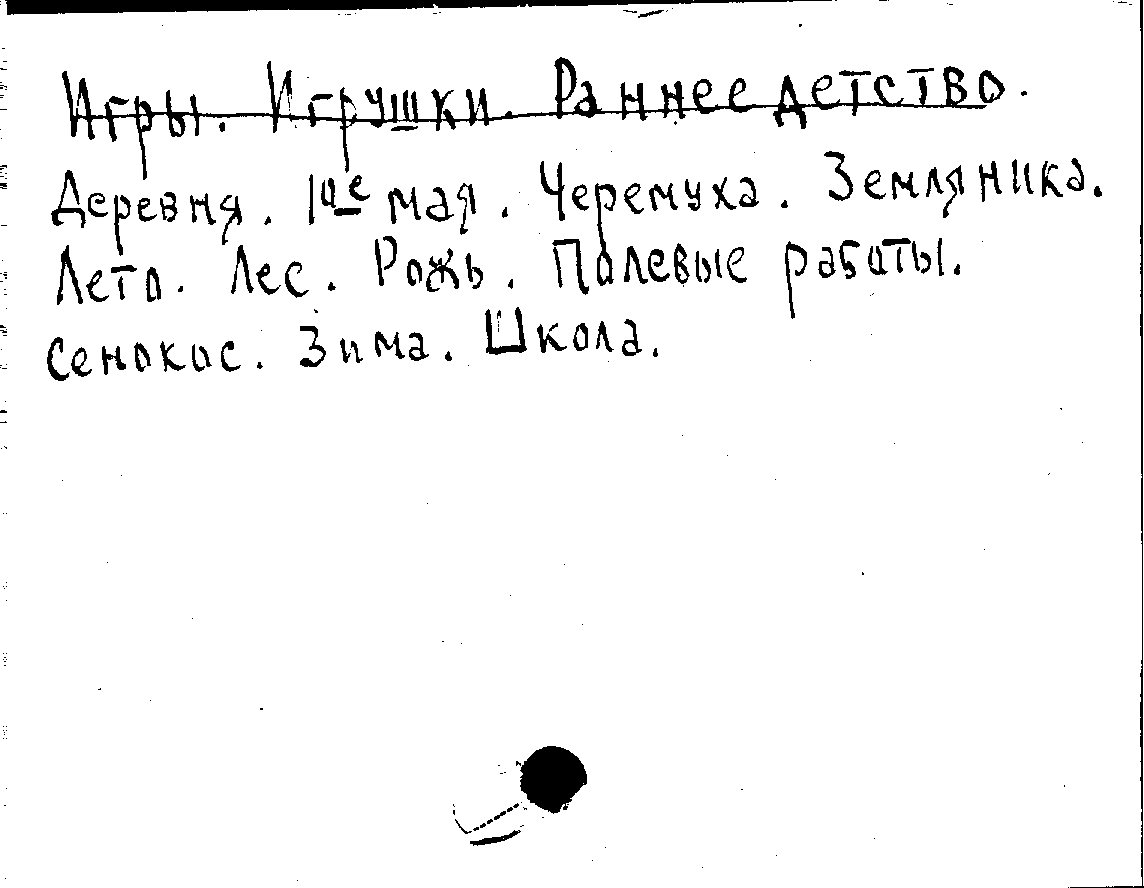 Игры. Игрушки. Раннее детство.
Деревня. 1ое мая. Черемуха. Земляника.
Лето. Лес. Рожь. Полевые работы.
Сенокос. Зима. Школа.